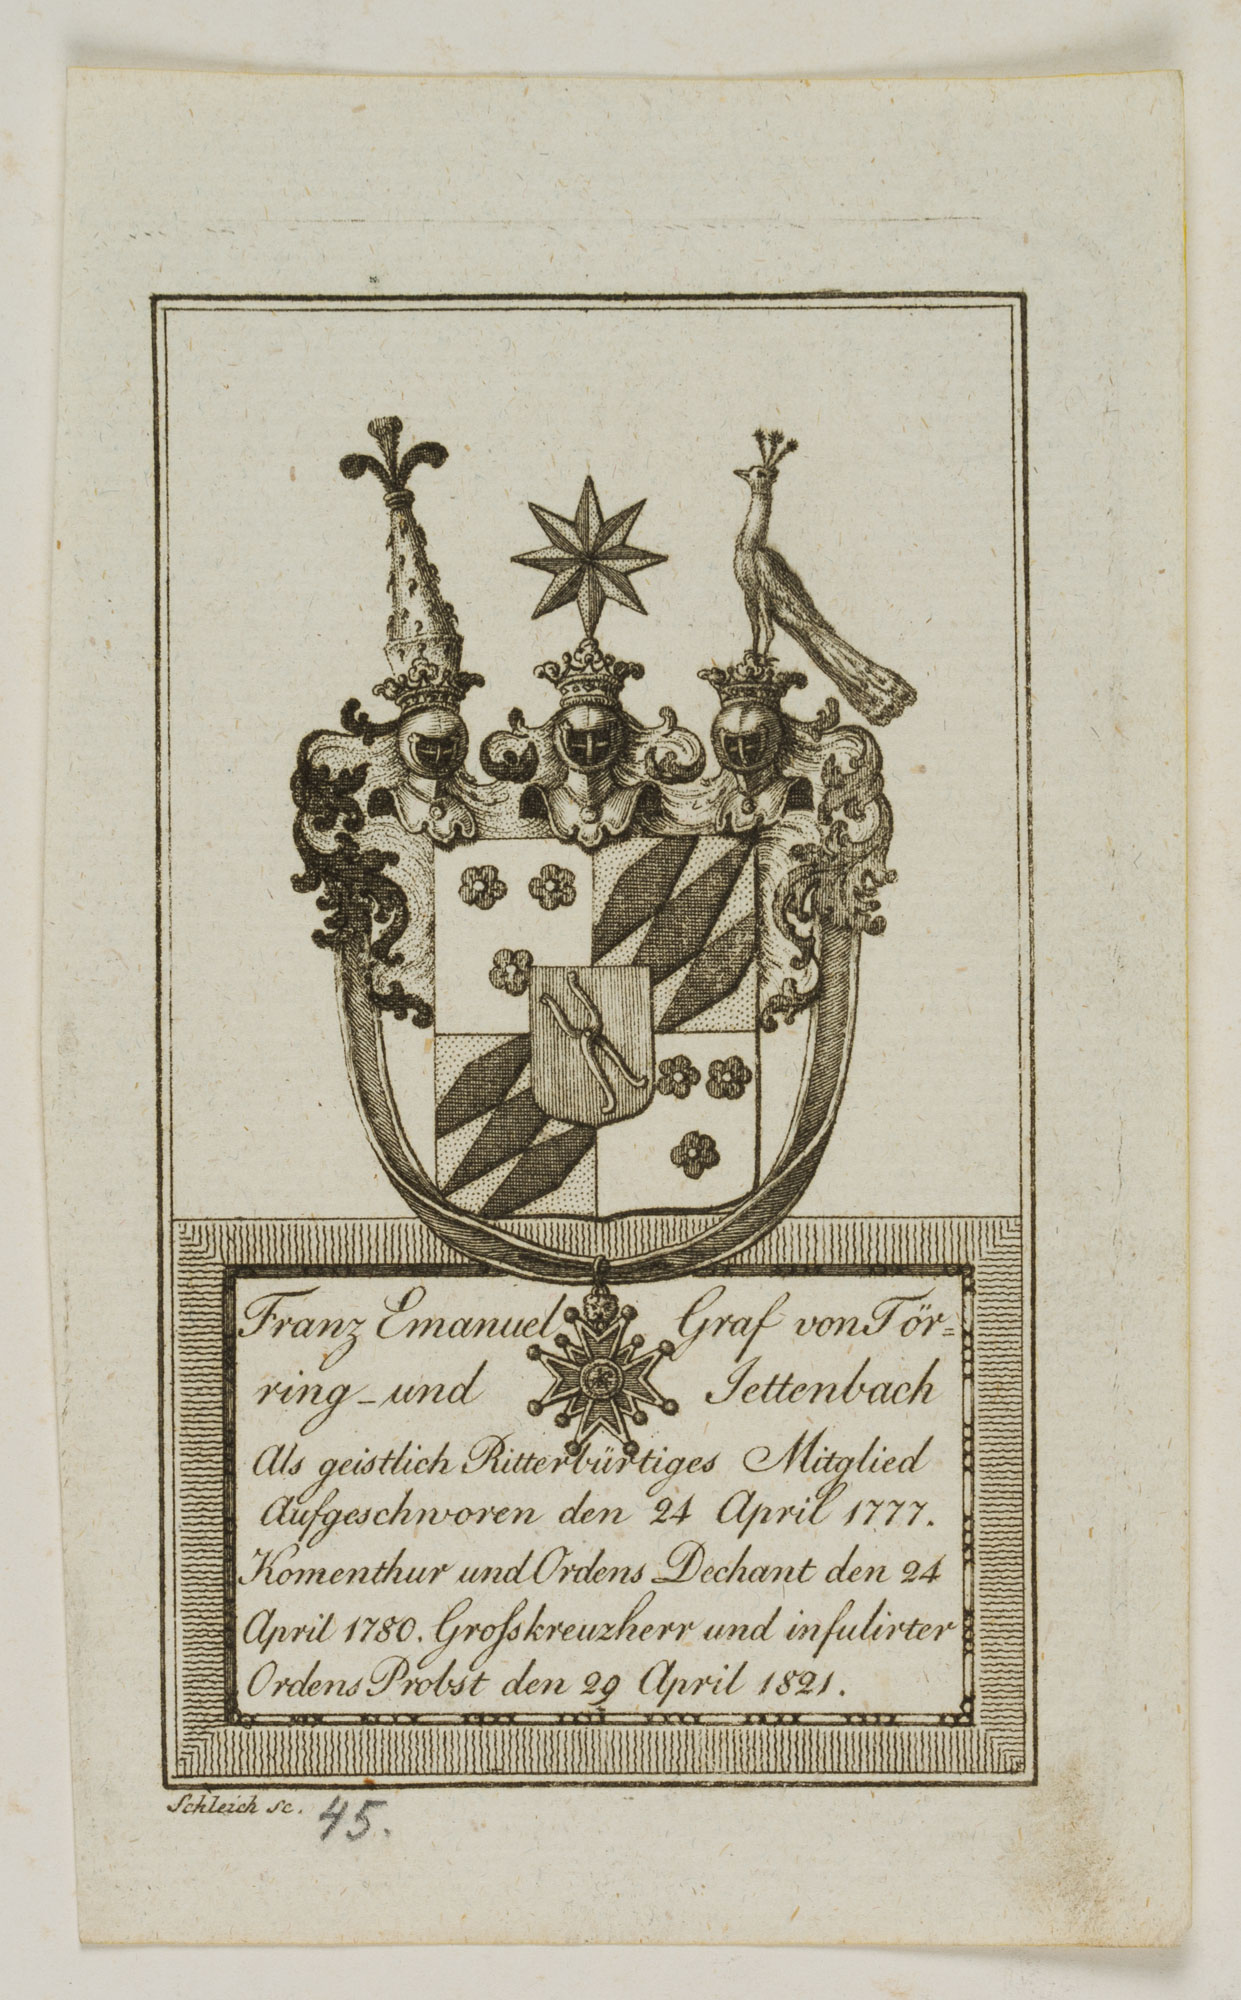 Franz Emanuel Graf von Tör=
ring-und Jettenbach
Als geistlich Ritterbürtiges Mitglied
Aufgeschworen den 24 April 1777.
Komenthur und Ordens Dechant den 24
April 1780. Groſskreuzherr und infulirter
Ordens Probst den 29 April 1821.
Schleich sc. 45.